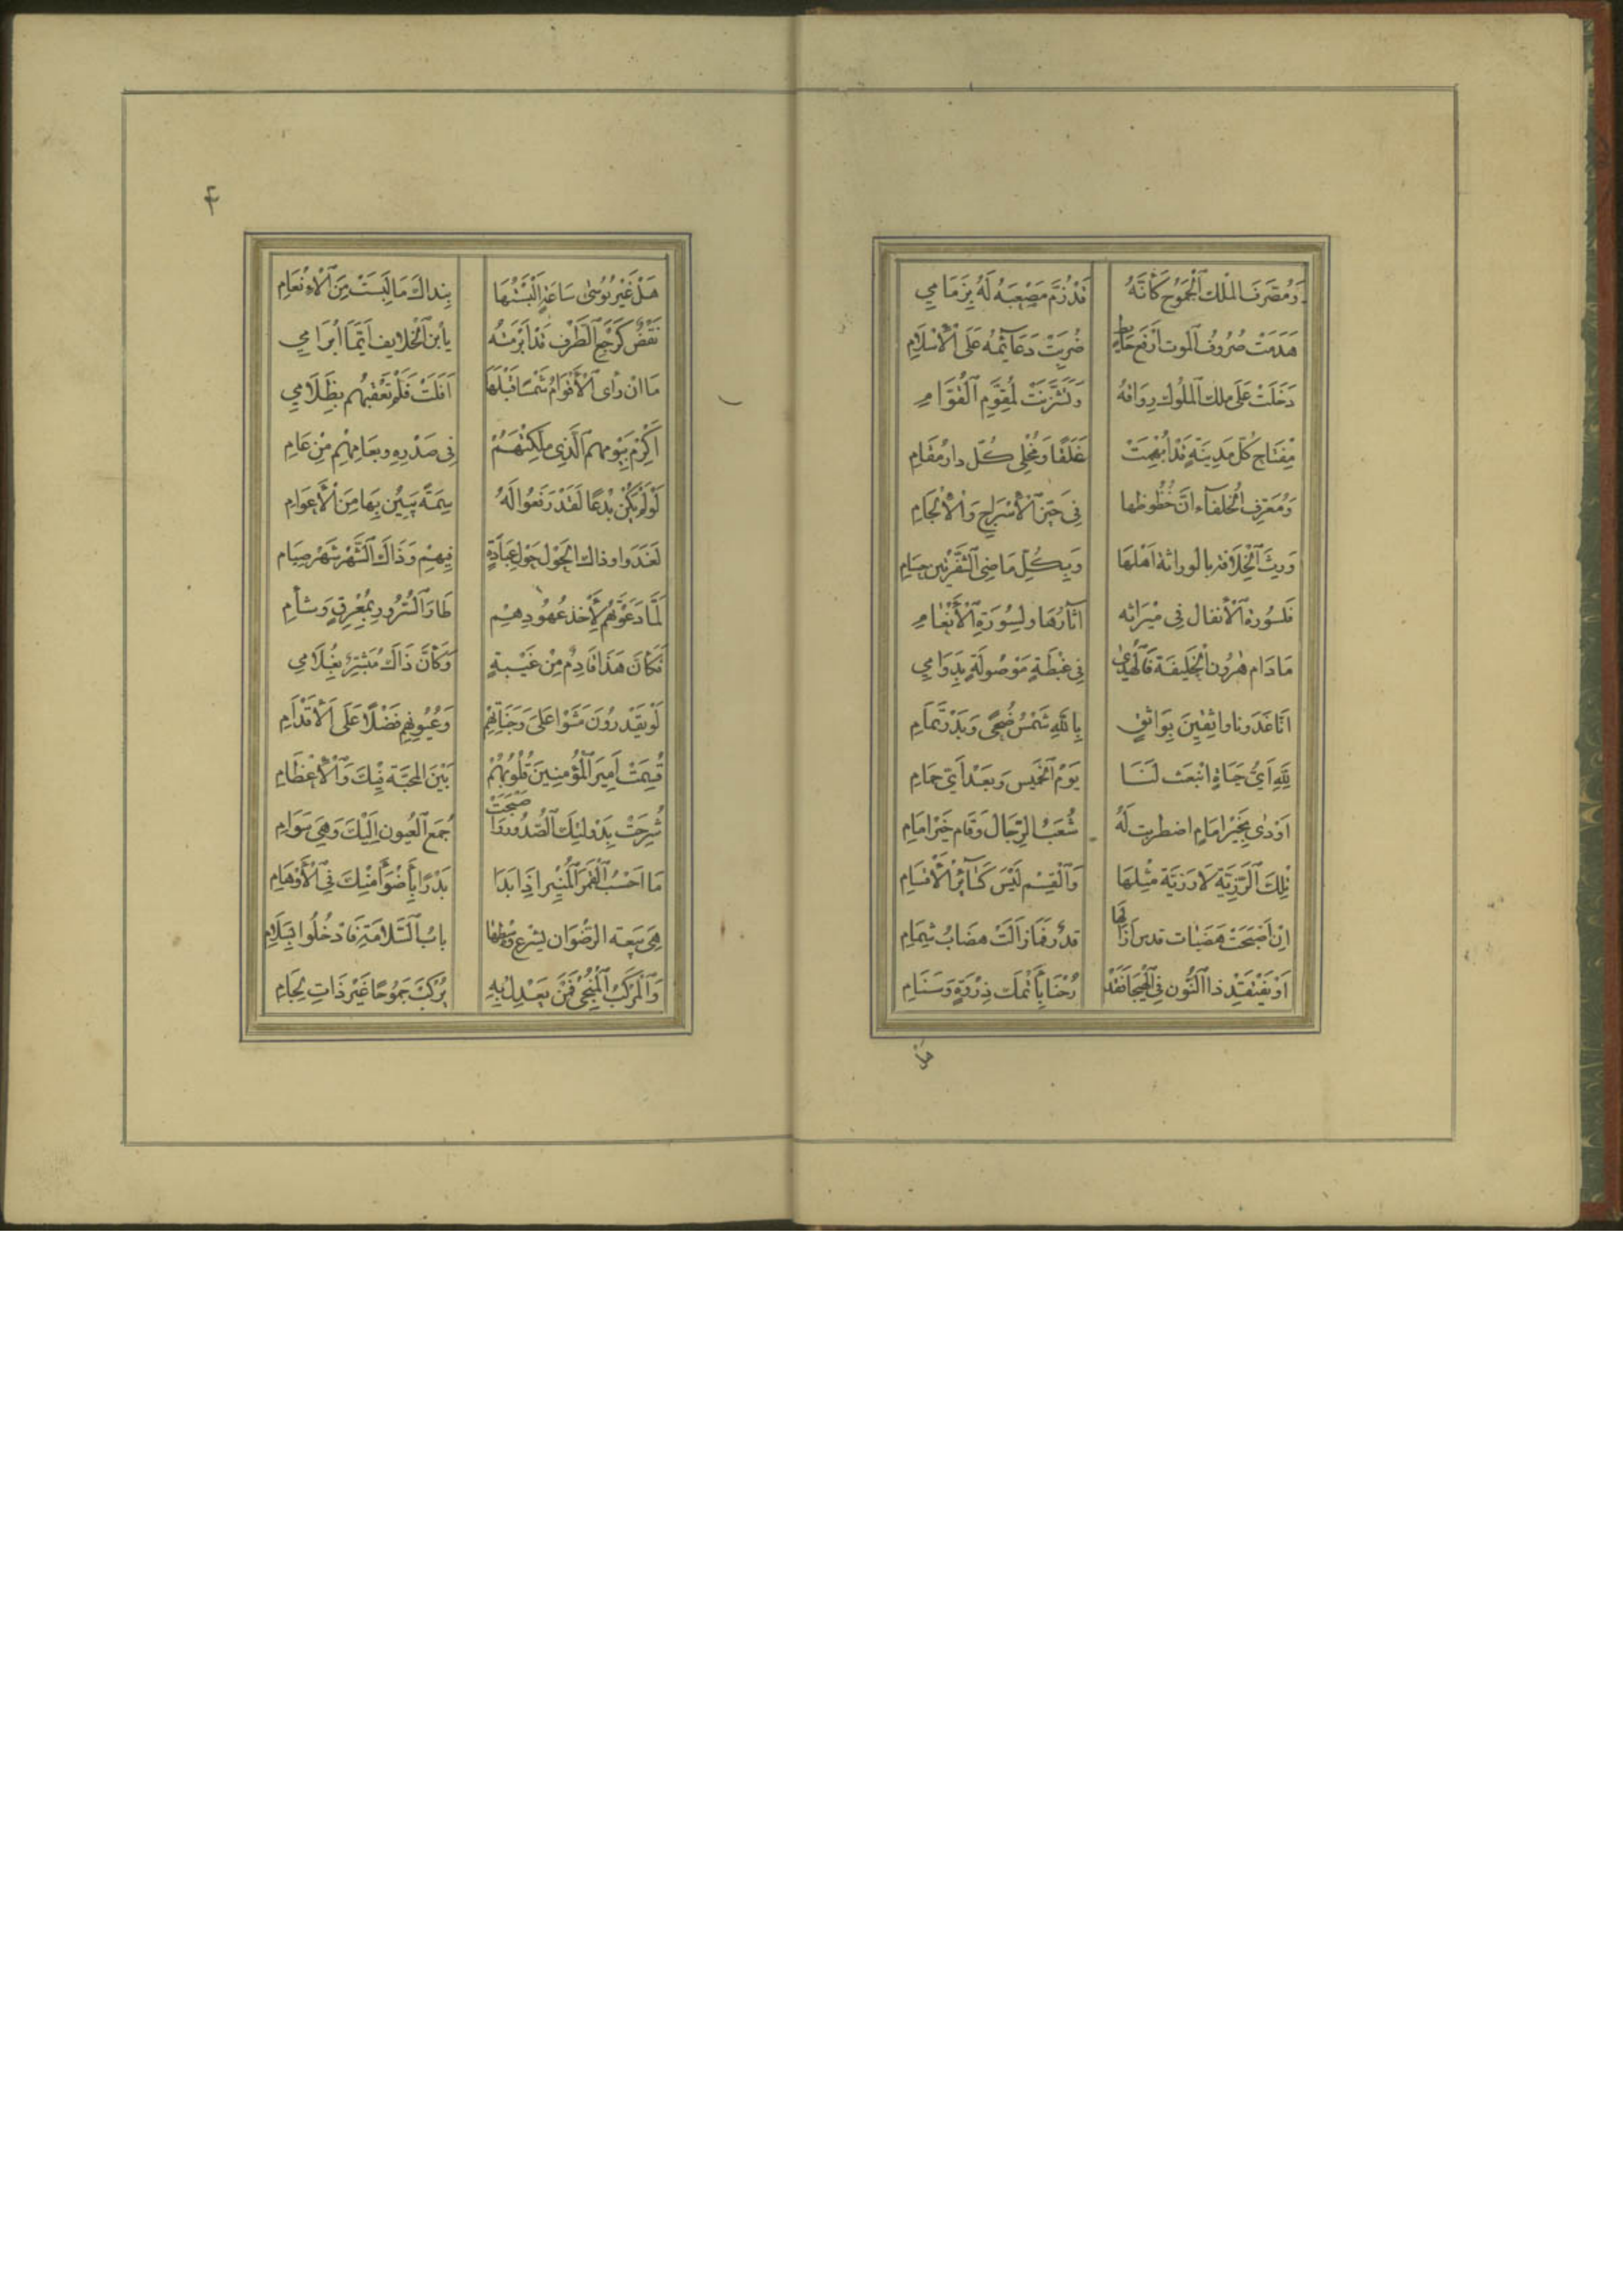 وَمُصَرِّفَ الْمُلْكِ الْجَمُوحِ كَأَنَّهُ قَدْ زُمَّ مُصْعَبُهُ لَهُ بِزِمَامِ
هَدَمَتْ صُرُوفُ الْمَوْتِ أَرْفَعَ حَائِطٍ ضُرِبَتْ دَعَائِمُهُ عَلَى الْإِسْلَامِ
دَخَلَتْ عَلَى مَلِكِ الْمُلُوكِ رِوَاقَهُ وَتَشَزَّنَتْ لِمُقَوِّمِ الْقُوَّامِ
مِفْتَاحُ كُلِّ مَدِينَةٍ قَدْ أُبْهِمَتْ غَلَقًا وَمُخْلِي كُلِّ دَارِ مُقَامِ
وَمُعَرِّفُ الْخُلَفَاءِ أَنَّ حُظُوظَهَا فِي حَيِّزِ الْإِسْرَاجِ وَالْإِلْجَامِ
وَرِثَ الْخِلَافَةَ بِالْوِرَاثَةِ أَهْلَهَا وَبِكُلِّ مَاضِي الشَّفْرَتَيْنِ حُسَامِ
فَلِسُورَةِ الْأَنْفَالِ فِي مِيرَاثِهِ آثَارُهَا وَلِسُورَةِ الْأَنْعَامِ
مَا دَامَ هَرُونُ الْخَلِيفَةَ فَالْهُدَى فِي غِبْطَةٍ مَوْصُولَةٍ بِدَوَامِي
إِنَّا غَدَوْنَا وَاثِقِينَ بِوَاثِقٍ بِاللَّهِ شَمْسُ ضُحًى وَبَدْرُ تَمَامِ
لِلَّهِ أَيُّ حَيَاةٍ انْبَعَثَتْ لَنَا يَوْمَ الْخَمِيسِ وَبَعْدَ أَيِّ حِمَامِ
أَوْدَى بِخَيْرِ إِمَامٍ اضْطَرَبَتْ لَهُ شُعَبُ الرِّجَالِ وَقَامَ خَيْرُ إِمَامِ
تِلْكَ الرَّزِيَّةُ لَا رَزِيَّةَ مِثْلُهَا وَالْقِسْمُ لَيْسَ كَسَائِرِ الْأَقْسَامِ
إِنْ أَصْبَحَتْ هَضَبَاتُ قُدْسَ أَزَالَهَا قَدَرٌ فَمَا زَالَتْ هِضَابُ شَمَامِ
أَوْ يُفْتَقَدْ ذُو النُّونِ فِي الْهَيْجَا فَقَدْ
رُحْنَا بِأَتْمَكِ ذِرْوَةٍ وَسَنَامِ
هل
۴
هَلْ غَيْرُ بُؤْسَى سَاعَةٍ أَلْبَسْتَهَا بِنَدَاكَ مَا لَبِسَتْ مِنَ الْإِنْعَامِ
نَقْضٌ كَرَجْعِ الطَّرْفِ قَدْ أَبْرَمْتَهُ يَا ابْنَ الْخَلَايِفِ أَيَّمَا إِبْرَامِي
مَا إِنْ رَأَى الْأَقْوَامُ شَمْسًا قَبْلَهَا أَفَلَتْ فَلَمْ تُعْقِبْهُمُ بِظَلَامِي
أَكْرِمْ بِيَوْمِهِمِ الَّذِي مُلِّكْتَهُمْ فِي صَدْرِهِ وَبِعَامِهِمْ مِنْ عَامِ
لَوْ لَمْ يَكُنْ بِدْعًا لَقَدْ رَفَعُوا لَهُ سِمَةً يَبِينُ بِهَا مِنَ الْأَعْوَامِ
لَغَدَوْا وَذَاكَ الْحَوْلُ حَوْلُ عِبَادَةٍ فِيهِمْ وَذَاكَ الشَّهْرُ شَهْرُ صِيَامِ
لَمَّا دَعَوْتَهُمُ لِأَخْذِ عُهُودِهِمْ طَارَ السُّرُورُ بِمُعْرِقٍ وَشَآمِ
فَكَأَنَّ هَذَا قَادِمٌ مِنْ غَيْبَةٍ وَكَأَنَّ ذَاكَ مُبَشَّرٌ بِغُلَامِي
لَوْ يَقْدِرُونَ مَشَوْا عَلَى وَجَنَاتِهِمْ وَعُيُونِهِمْ فَضْلًا عَلَى الْأَقْدَامِ
قُسِمَتْ أَمِيرَ الْمُؤْمِنِينَ قُلُوبُهُمْ بَيْنَ الْمَحَبَّةِ فِيكَ وَالْإِعْظَامِ
شُرِحَتْ بِدَوْلَتِكَ الصُّدُورُ وَأَصْبَحَتْ جُمَعُ الْعُيُونِ إِلَيْكَ وَهِيَ سَوَامِ
مَا أَحْسَبُ الْقَمَرَ الْمُنِيرَ إِذَا بَدَا بَدْرًا بِأَضْوَأَ مِنْكَ فِي الْأَوْهَامِ
هِيَ بَيْعَةُ الرِّضْوَانِ يُشْرَعُ وَسْطَهَا بَابُ السَّلَامَةِ فَادْخُلُوا بِسَلَامِ
وَالْمَرْكَبُ الْمُنْجِي فَمَنْ يَعْدِلْ بِهِ يَرْكَبْ جَمُوحًا غَيْرَ ذَاتِ لِجَامِ